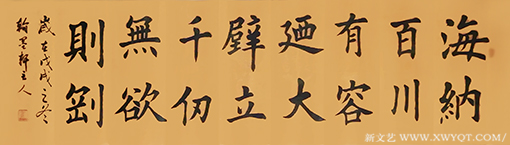 海納
百川
有容
廼大
壁立
千仞
無欲
則剛
歲在戊戌之冬
翰墨軒主人
新文艺 WWW.XWYQT.COM